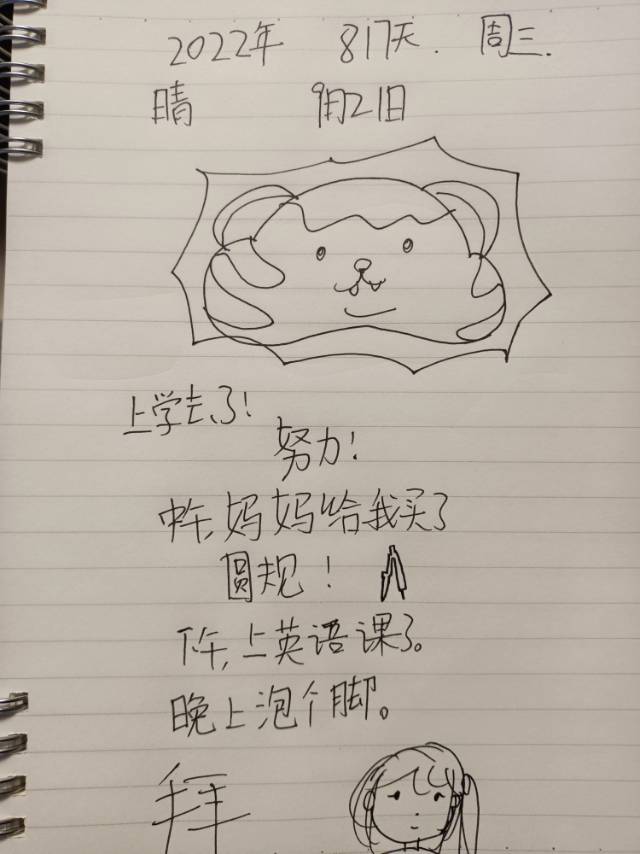 2022年 817天. 周三.
晴 9月21日
上学去了!
努力!
中午,妈妈给我买了
圆规!
下午,上英语课了。
晚上泡个脚。
拜